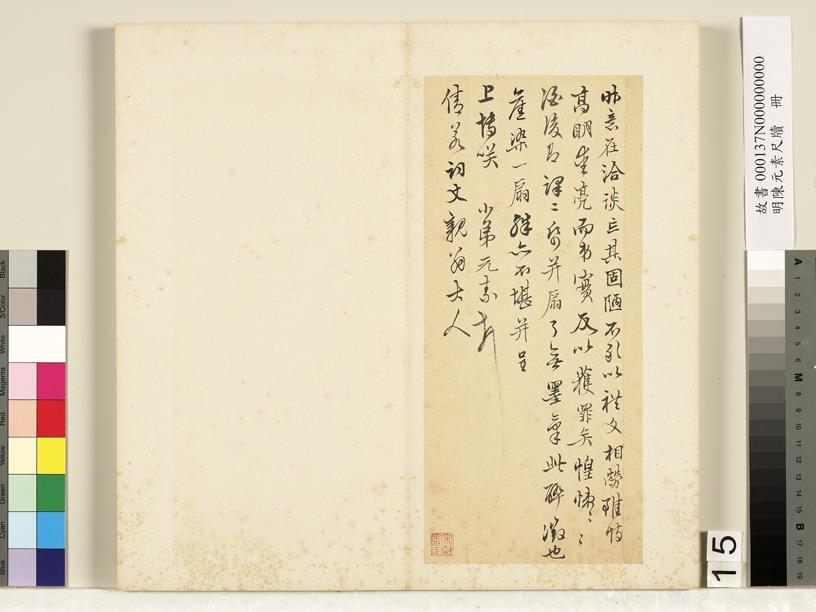 昨意在洽談忘其固陋不敢以禮文相勞雖恃
高明垂亮而弟實反以獲罪矣惶悚〻〻
酒後即譯二紙并扇了無墨氣此醉徵也
崖染一扇殊亦不堪并呈
上博咲 小弟元素
倩若詞文親翁大人
故書 000137N000000000
明陳元素尺牘 冊
15
Black
3/Color
White
Magenta
Red
Yellow
Green
Cyan
Blue
A 1 2 3 4 5 6 M 8 9 10 11 12 13 14 15 B 17 18 19